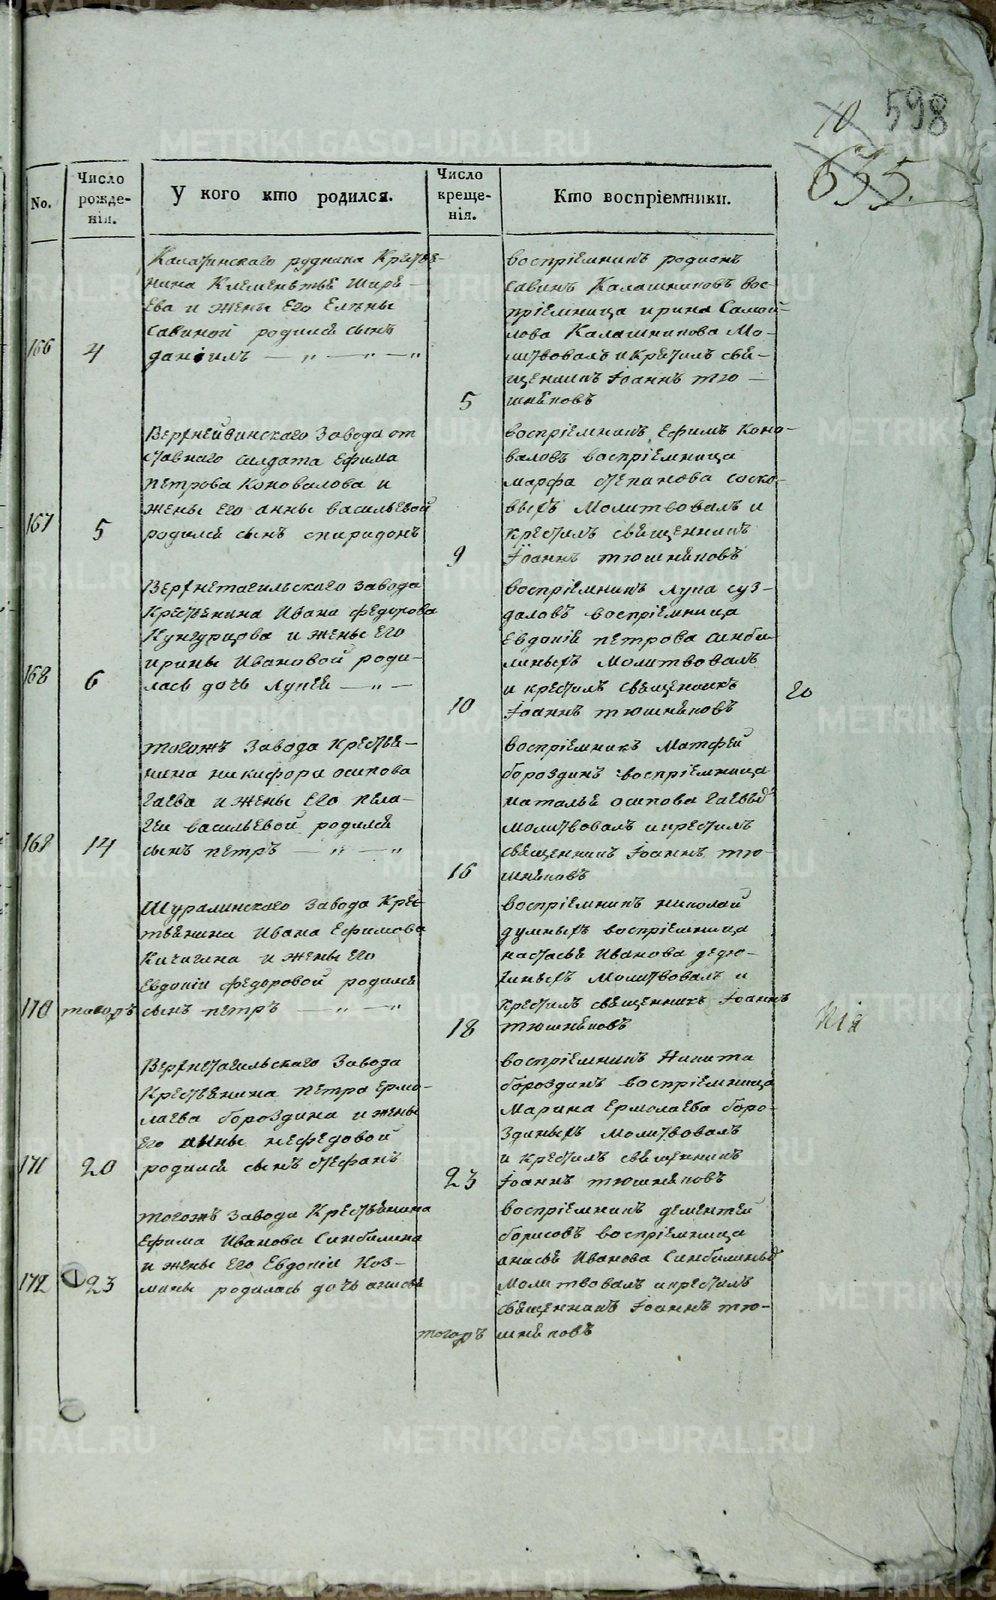 598
10
635.
No.
Число рожде- нія.
У кого кто родился.
Число креще- нія.
Кто воспріемники.
166
4
Калатинскаго рудника Крестья-
нина Клементья Ширя-
ева и жены его Елены
Савиной родился сынъ
даніилъ — „ — „ — „
5
воспріемникъ родионъ
савинъ Калашниковъ вос-
пріемница ирина Самой-
лова Калашникова Мо-
литвовалъ и Крестилъ свя-
щенникъ Іоаннъ тю —
шняковъ
167
5
Верхнейвинскаго Завода от
ставнаго солдата Ефима
петрова Коновалова и
жены его анны васильевой
родился сынъ спиридонъ
9
воспріемникъ Ефимъ Коно-
валовъ воспріемница
марфа степанова соско-
выхъ Молитвовалъ и
крестилъ священникъ
Іоаннъ тюшняковъ
168
6
Верхнетагильскаго Завода
Крестьянина Ивана федорова
Кунгурцова и жены Его
ирины Ивановой роди-
лась дочь Лукея — „ —
10
воспріемникъ Лука суз-
даловъ воспріемница
Евдокія петрова синби-
линыхъ Молитвовалъ
и крестилъ священникъ
Іоаннъ тюшняковъ
20
169
14
тогожъ Завода Крестья-
нина никифора осипова
Гаева и жены Его пела-
геи васильевой родился
сынъ петръ — „ — „
16
воспріемникъ Матфей
бороздинъ воспріемница
наталья осипова Гаевыхъ
молитвовалъ и крестилъ
священникъ Іоаннъ тю-
шняковъ
170
тогожъ
Шуралинскаго Завода Крес-
тьянина Ивана Ефимова
Кичигина и жены Его
Евдокіи федоровой родился
сынъ петръ — „ — „
18
воспріемникъ николай
думныхъ воспріемница
настасья Иванова дедю-
хиныхъ Молитвовалъ и
Крестилъ священникъ Іоаннъ
тюшняковъ
171
20
Верхнетагильскаго Завода
Крестьянина петра ермо-
лаева бороздина и жены
его анны нефедовой
родился сынъ стефанъ
23
воспріемникъ Никита
бороздинъ воспріемница
Марина Ермолаева боро-
здиныхъ Молитвовалъ
и крестилъ священникъ
Іоаннъ тюшняковъ
172
23
тогожъ Завода Крестьянина
Ефима Иванова Синбилина
и жены Его Евдокіи Коз-
мины родилась дочь анисья
тогожъ
воспріемникъ дементей
борисовъ воспріемница
анисья Иванова Синбилиныхъ
Молитвовалъ и крестилъ
священникъ Іоаннъ тю-
шняковъ
METRIKI.GASO-URAL.RU